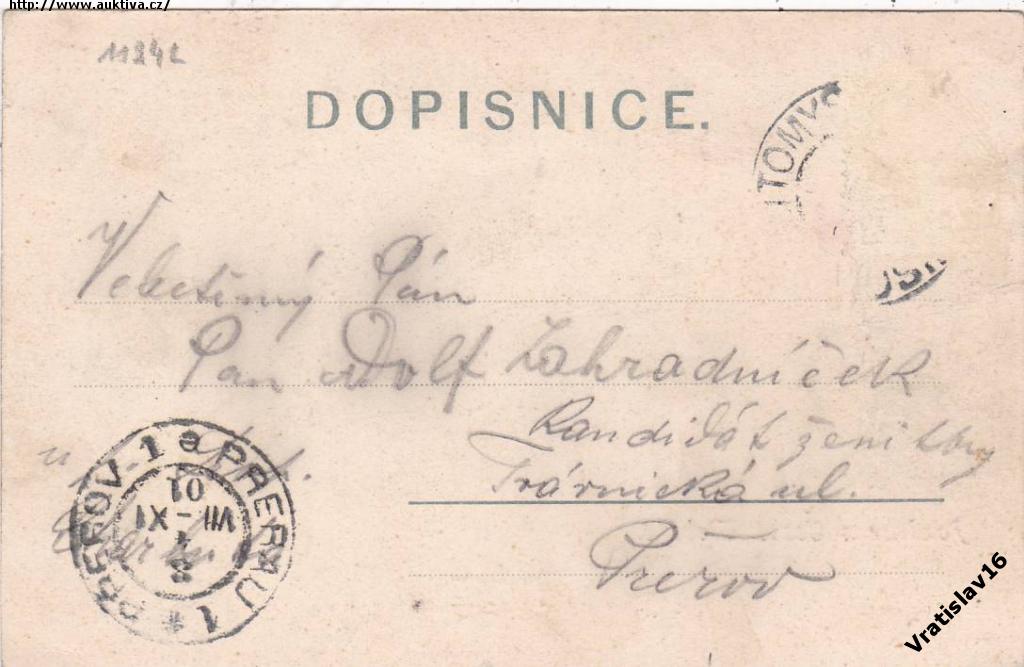 http://www.auktiva.cz/
DOPISNICE.
ITOMYS
Velectěný Pán
Pan Adolf Zahradníček
Kandidát ženitby
Trávnická ul.
Přerov
PŘEROV-1 a PRERAU 1 *
VII-XI
01
Vratislav16